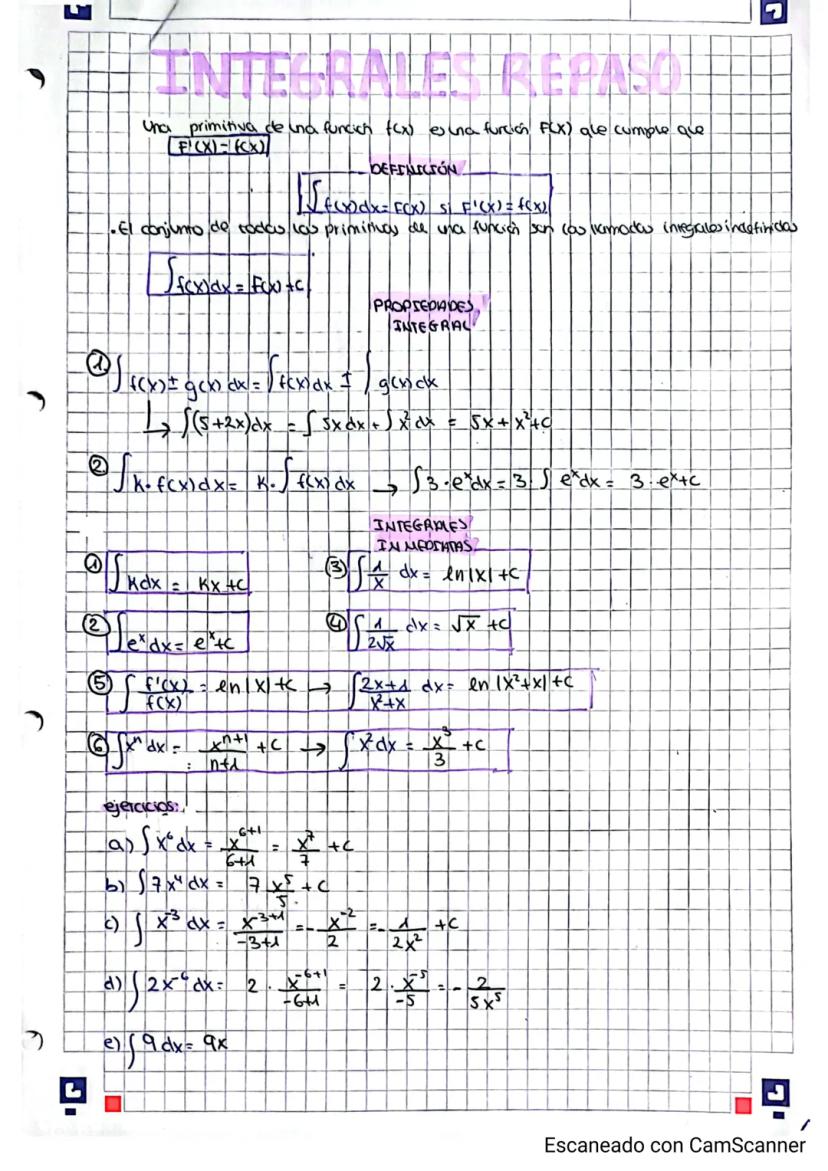 INTEGRALES REPASO
Una primitiva de una función f(x) es una función F(x) que cumple que
F'(x) = f(x)
DEFINICIÓN
∫f(x)dx = F(x) si F'(x) = f(x)
• El conjunto de todas las primitivas de una función son las llamadas integrales indefinidas
∫f(x)dx = F(x) + C
PROPIEDADES
INTEGRAL
① ∫f(x) ± g(x) dx = ∫f(x)dx ± ∫g(x)dx
↳ ∫(5+2x)dx = ∫5xdx + ∫x² dx = 5x + x² + C
② ∫k · f(x)dx = k · ∫f(x)dx → ∫3 · eˣdx = 3 · ∫eˣdx = 3 · eˣ + C
INTEGRALES
INMEDIATAS
① ∫kdx = kx + C
③ ∫1/x dx = ln|x| + C
② ∫eˣdx = eˣ + C
④ ∫1/2√x dx = √x + C
⑤ ∫f'(x)/f(x) = ln|x| + C → ∫2x+1/x²+x dx = ln|x²+x| + C
⑥ ∫xⁿ dx = xⁿ⁺¹/n+1 + C → ∫x²dx = x³/3 + C
ejercicios:
a) ∫x⁶dx = x⁶⁺¹/6+1 = x⁷/7 + C
b) ∫7x⁴dx = 7 x⁵/5 + C
c) ∫x⁻³dx = x⁻³⁺¹/-3+1 = - x⁻²/2 = - 1/2x² + C
d) ∫2x⁻⁶dx = 2 · x⁻⁶⁺¹/-6+1 = 2 · x⁻⁵/-5 = - 2/5x⁵
e) ∫9dx = 9x
Escaneado con CamScanner